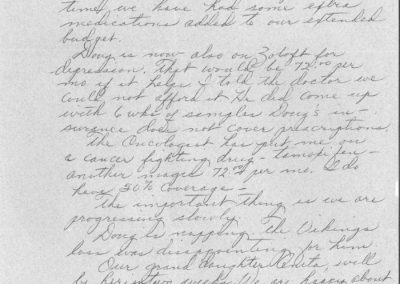 time, we have had some extra
medications added to our extended
budget.
Doug is now also on Zoloft for
depression. That would be 72.00 per
mo if it helps I told the doctor we
could not afford it He did come up
with 6 wks of samples Doug's in-
surance does not cover prescriptions.
The Oncologist has put me on
a cancer fighting drug - tamoxifen -
another 72.00 per mo. I do
have 50% coverage -
The important thing is we are
progressing slowly.
Doug is napping. The Vikings
loss was disappointing for him
Our granddaughter will
be here in two weeks We are happy about